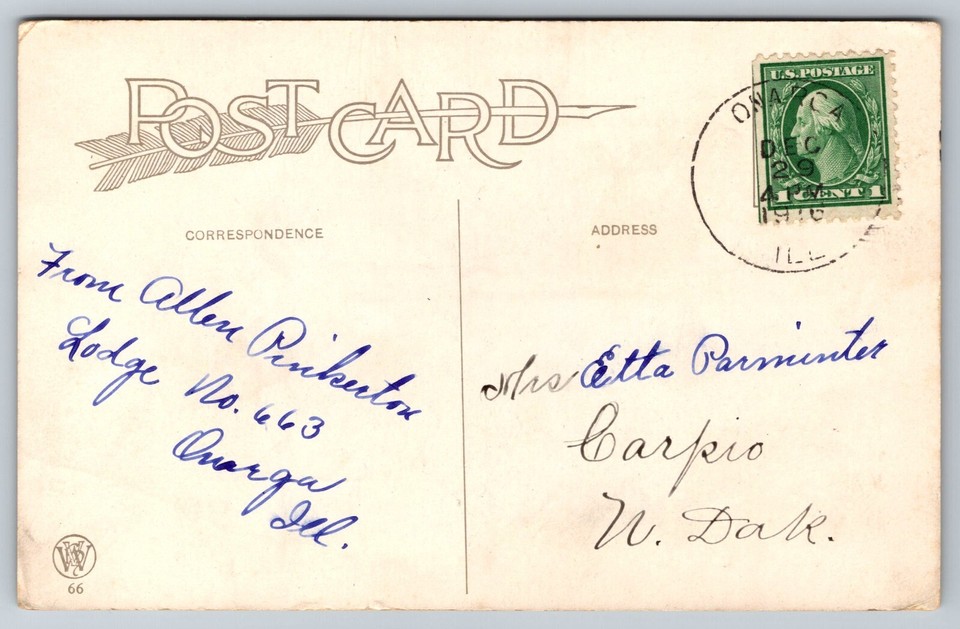 POST CARD
U.S. POSTAGE
1 CENT 1
ONARGA
DEC
29
4 PM
1916
ILL
CORRESPONDENCE
ADDRESS
From Allen Pinkerton
Lodge No. 663
Onarga
Ill.
Mrs Etta Parminter
Carpio
N. Dak.
66